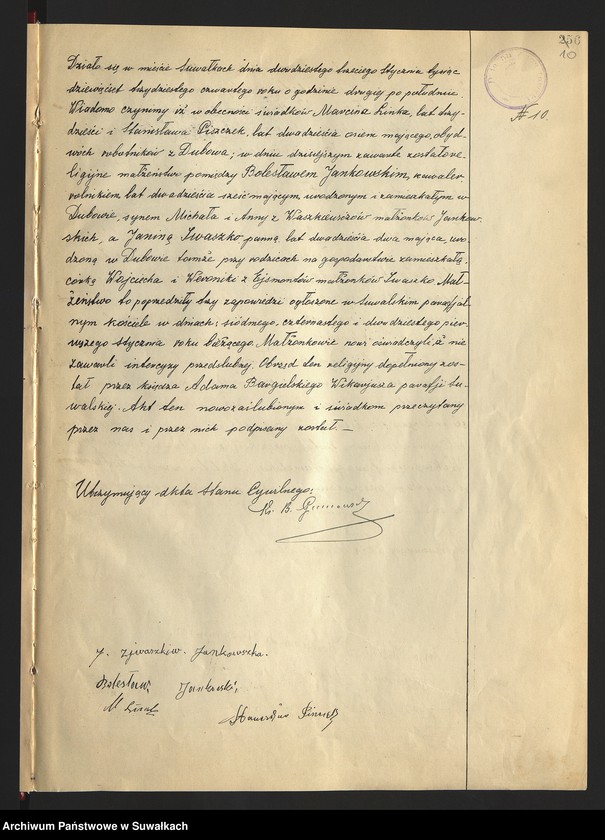 256
10
№ 10.
Działo się w mieście Suwałkach dnia dwudziestego trzeciego stycznia tysiąc
dziewięćset trzydziestego czwartego roku o godzinie drugiej po południu
Wiadomo czynimy iż w obecności świadków Marcina Linka, lat trzy-
dzieści i Stanisława Piszczek, lat dwadzieścia osiem mającego, obyd-
wóch robotników z Dubowa; w dniu dzisiejszym zawarte zostało re-
ligijne małżeństwo pomiędzy Bolesławem Jankowskim, kawaler
rolnikiem, lat dwadzieścia sześć mającym, urodzonym i zamieszkałym w
Dubowie, synem Michała i Anny z Waszkiewiczów małżonków Jankow-
skich, a Janiną Iwaszko, panną, lat dwadzieścia dwa mającą, uro-
dzoną w Dubowie tamże przy rodzicach na gospodarstwie zamieszkałą,
córką Wojciecha i Weroniki z Ejsmontów małżonków Iwaszko. Mał-
żeństwo to poprzedziły trzy zapowiedzi ogłoszone w Suwalskim parafjal-
nym kościele w dniach: siódmego, czternastego i dwudziestego pier-
wszego stycznia roku bieżącego. Małżonkowie nowi oświadczyli iż nie
zawarli intercyzy przedślubnej. Obrzęd ten religijny dopełniony zos-
tał przez księdza Adama Bargielskiego Wikarjusza parafji Su-
walskiej. Akt ten nowozaślubionym i świadkom przeczytany
przez nas i przez nich podpisany został. —
Utrzymujący Akta Stanu Cywilnego:
Ks. B.
J. z Iwaszków Jankowska.
Bolesław Jankowski
M Linek
Stanisław
Archiwum Państwowe w Suwałkach